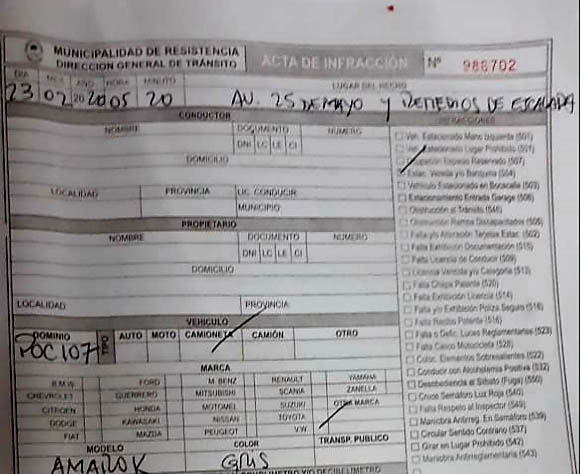 MUNICIPALIDAD DE RESISTENCIA
DIRECCION GENERAL DE TRÁNSITO
ACTA DE INFRACCIÓN Nº 986702
DIA MES AÑO HORA MINUTO LUGAR DEL HECHO
23 02 2020 05 20 AV. 25 DE MAYO y REMEDIOS DE ESCALADA
CONDUCTOR
NOMBRE DOCUMENTO NUMERO
DNI LC LE CI
DOMICILIO
LOCALIDAD PROVINCIA LIC. CONDUCIR
MUNICIPIO
PROPIETARIO
NOMBRE DOCUMENTO NUMERO
DNI LC LE CI
DOMICILIO
LOCALIDAD PROVINCIA
VEHICULO
DOMINIO TIPO AUTO MOTO CAMIONETA CAMIÓN OTRO
POC107
MARCA
B.M.W. FORD M. BENZ RENAULT YAMAHA
CHEVROLET GUERRERO MITSUBISHI SCANIA ZANELLA
CITROEN HONDA MOTOMEL SUZUKI OTRA MARCA
DODGE KAWASAKI NISSAN TOYOTA
FIAT MAZDA PEUGEOT V.W.
MODELO COLOR TRANSP. PUBLICO
AMAROK GRIS
INFRACCIONES
Veh. Estacionado Mano Izquierda (501)
Veh. Estacionado Lugar Prohibido (501)
Ocupación Espacio Reservado (507)
Estac. Vereda y/o Banquina (504)
Vehículo Estacionado en Bocacalle (503)
Estacionamiento Entrada Garage (506)
Obstrucción al Tránsito (546)
Obstrucción Rampa Discapacitados (505)
Falta y/o Alteración Tarjetas Estac. (502)
Falta Exhibición Documentación (515)
Falta Licencia de Conducir (509)
Licencia Vencida y/o Categoría (513)
Falta Chapa Patente (520)
Falta Exhibición Licencia (514)
Falta Exhibición Póliza Seguro (516)
Falta Recibo Patente (516)
Falta o Defic. Luces Reglamentarias (523)
Falta Casco Motocicleta (528)
Coloc. Elementos Sobresalientes (522)
Conducir con Alcoholemia Positiva (532)
Desobediencia al Silbato (Fuga) (550)
Cruce Semáforo Luz Roja (540)
Falta Respeto al Inspector (549)
Maniobra Antirreg. En Semáforo (539)
Circular Sentido Contrario (537)
Girar en Lugar Prohibido (542)
Maniobra Antirreglamentaria (543)